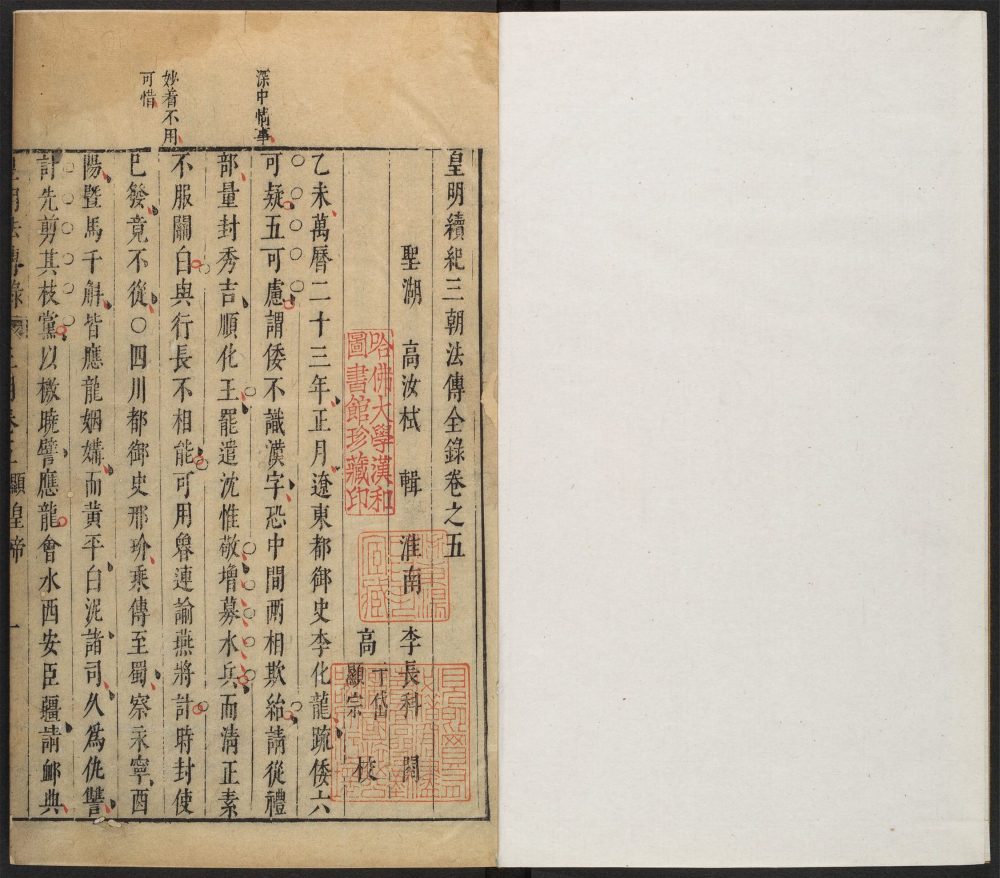 皇明續紀三朝法傳全錄卷之五
聖湖 高汝栻 輯 淮南 李長科 閱
高 于岱 顯宗 校
乙未萬曆二十三年正月遼東都御史李化龍疏倭六
可疑五可慮謂倭不識漢字恐中間兩相欺紿請從禮
部量封秀吉順化王罷遣沈惟敬增募水兵而清正素
不服關白與行長不相能可用魯連諭燕將計時封使
已發竟不從○四川都御史邢玠乘傳至蜀察永寧酉
陽暨馬千斛皆應龍姻媾而黃平白泥諸司久爲仇讐
計先剪其枝黨以檄曉譬應龍會水西安臣疆請䘏典
深中情事
妙着不用
可惜
皇明法傳錄 顯皇帝 一
哈佛大學漢和
圖書館珍藏印